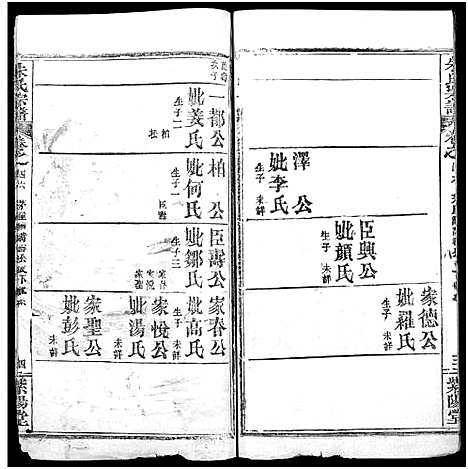 澤公
妣李氏
生子
未詳
臣興公
妣顏氏
生子
未詳
家德公
妣羅氏
未詳
三
紫陽堂
朱氏宗譜
一都公
妣姜氏
生子二
柏
松
柏公
妣何氏
生子一
臣壽
臣壽公
妣鄒氏
生子三
家春
家悅
家聖
家春公
妣高氏
生子
未詳
家悅公
妣湯氏
未詳
家聖公
妣彭氏
未詳
四
紫陽堂